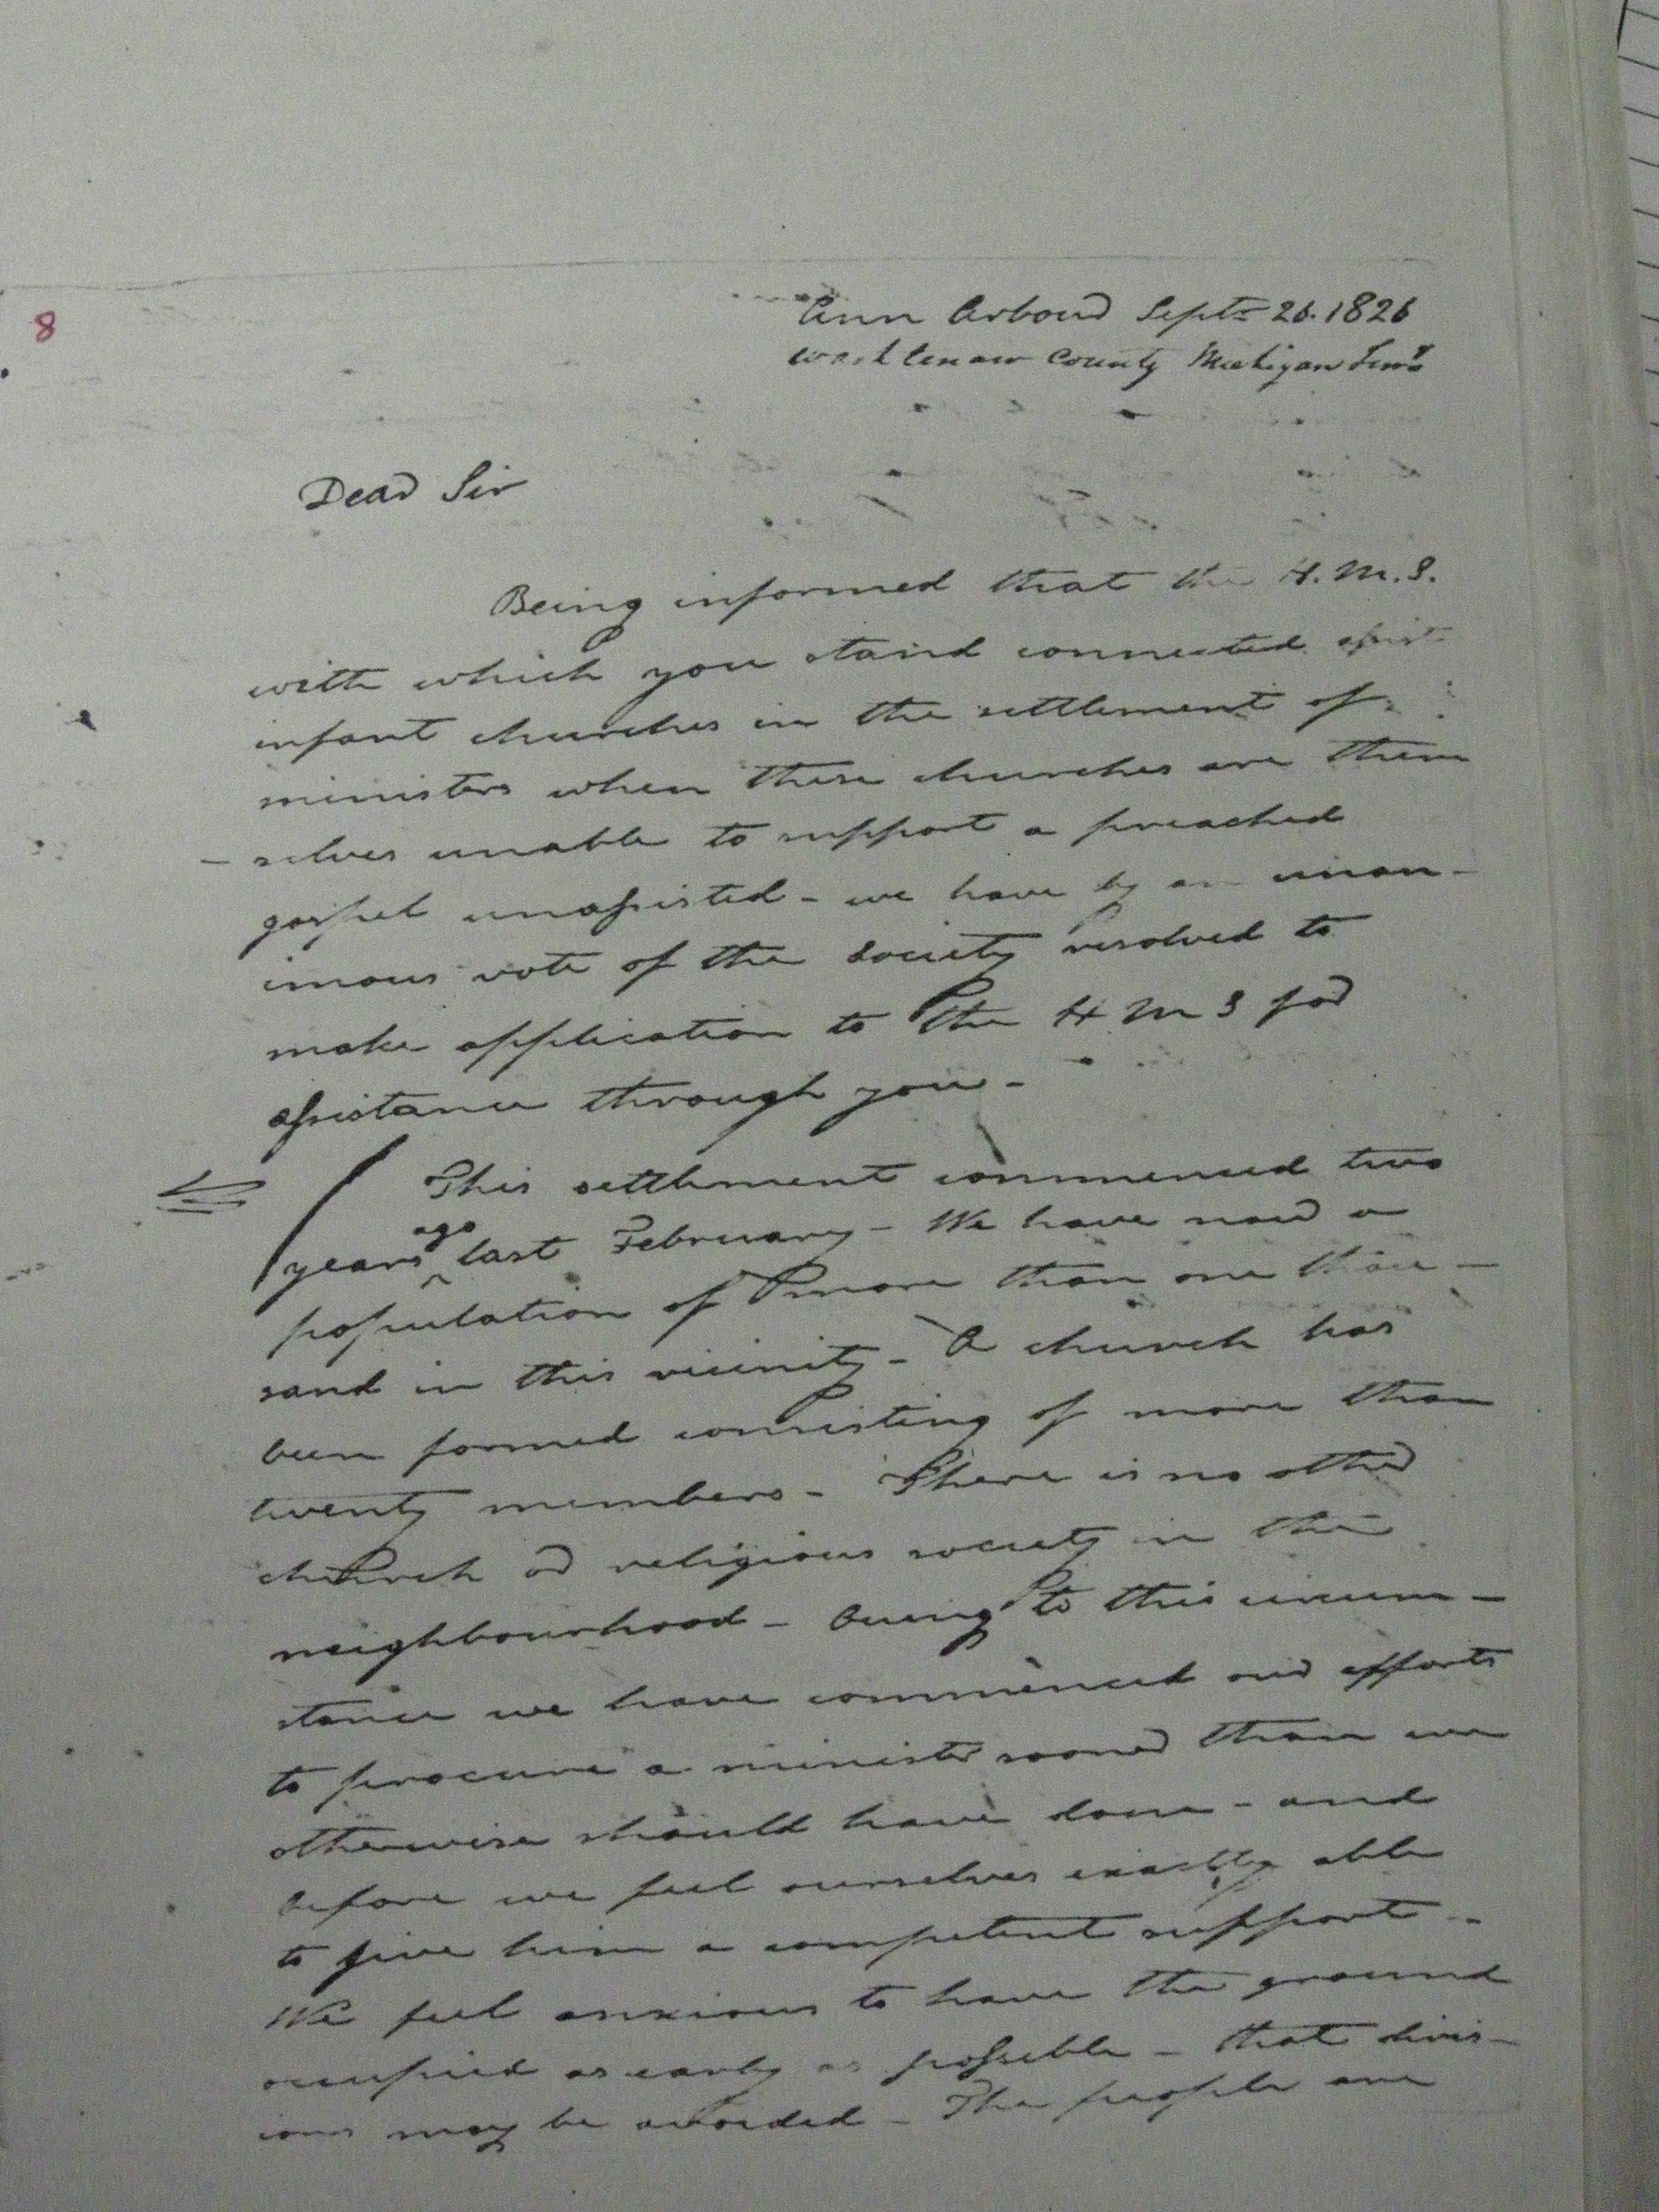 8
Ann Arbour Septr 26. 1826
Washtenaw County Michigan Terry
Dear Sir
Being informed that the H. M. S.
with which you stand connected assist
infant churches in the settlement of
ministers when these churches are them
- selves unable to support a preached
gospel unassisted - we have by an unan-
imous vote of the society resolved to
make application to the H M S for
assistance through you -
This settlement commenced two
years ago last February - We have now a
population of more than one thou-
sand in this vicinity - A church has
been formed consisting of more than
twenty members - There is no other
church or religious society in the
neighbourhood - Owing to this circum-
stance we have commenced our efforts
to procure a minister sooner than we
otherwise should have done - and
before we feel ourselves exactly able
to give him a competent support -
We feel anxious to have the ground
occupied as early as possible - that divis-
ions may be avoided - The people are